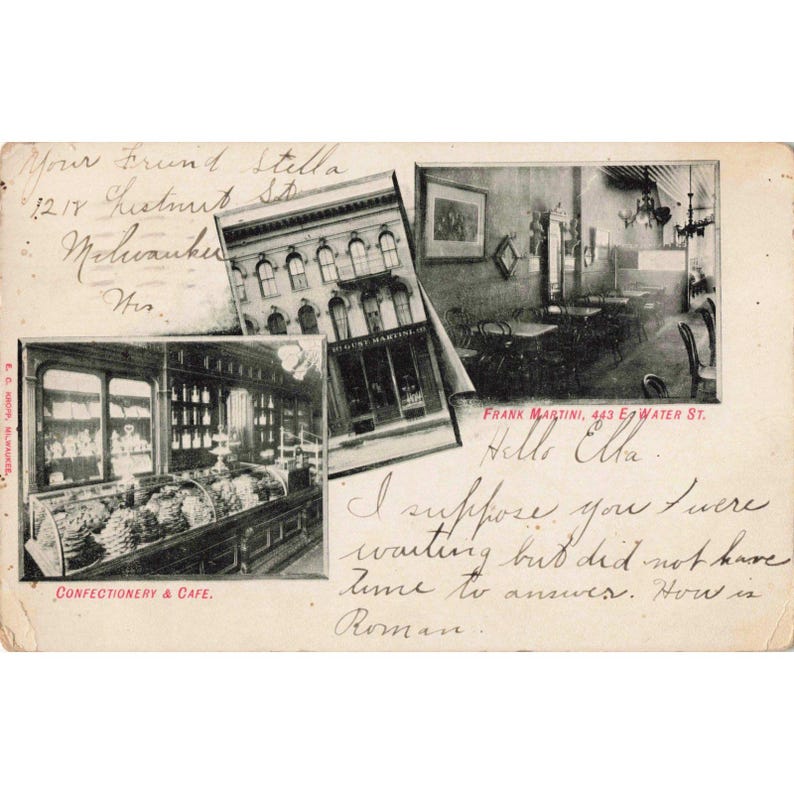 Your Friend Stella
1218 Chestnut St
Milwaukee
Wis
GUST MARTINI.
FRANK MARTINI, 443 E. WATER ST.
E. C. KROPP, MILWAUKEE.
CONFECTIONERY & CAFE.
Hello Ella.
I suppose you were
waiting but did not have
time to answer. How is
Roman.